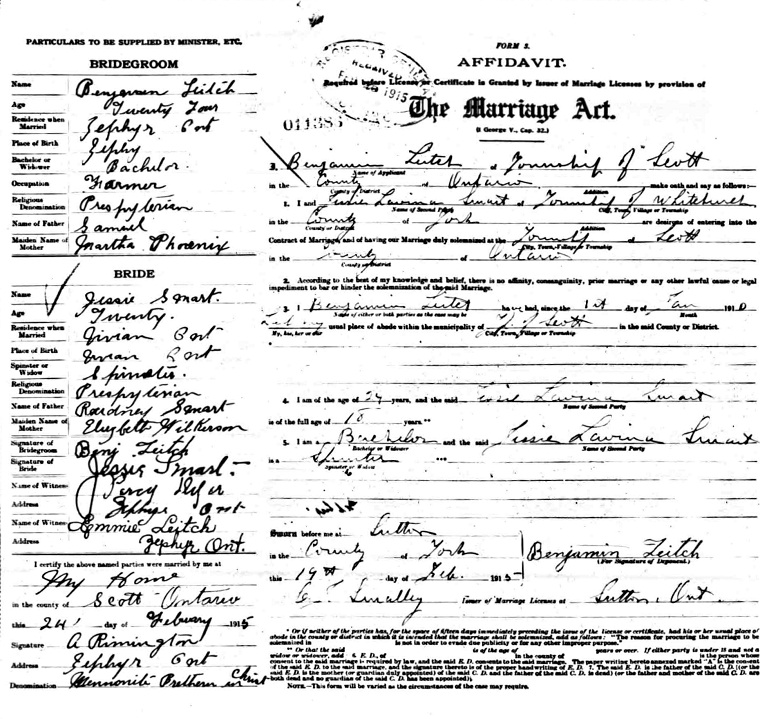 PARTICULARS TO BE SUPPLIED BY MINISTER, ETC.
BRIDEGROOM
Name Benjamin Leitch
Age Twenty Four
Residence when Married Zephyr Ont
Place of Birth Zephy
Bachelor or Widower Bachelor.
Occupation Farmer
Religious Denomination Presbyterian
Name of Father Samuel
Maiden Name of Mother Martha Phoenix
BRIDE
Name Jessie Smart.
Age Twenty.
Residence when Married Vivian Ont
Place of Birth Vivian Ont
Spinster or Widow Spinster.
Religious Denomination Presbyterian
Name of Father Smart
Maiden Name of Mother Wilkerson
Signature of Bridegroom Benj Leitch
Signature of Bride Jessie Smart.
Name of Witness Percy
Address Zephyr Ont
Name of Witness Emmie Leitch
Address Zephyr Ont.
I certify the above named parties were married by me at
My Home
in the county of Scott Ontario
this 24 day of February 1915
Signature A Rimington
Address Zephyr Ont
Denomination Mennonite Brethern in Christ
FORM 3.
AFFIDAVIT.
Required before License or Certificate is Granted by Issuer of Marriage Licenses by provision of
The Marriage Act.
(1 George V., Cap. 32.)
RECEIVED
1915
011385
I, Benjamin Leitch of Township of Scott
Name of Applicant Addition
in the County of Ontario make oath and say as follows:—
County or District
1. I and Jessie Lavina Smart of Township of Whitchurch
Name of Second Party City, Town, Village or Township
in the County of York are desirous of entering into the
County or District Addition
Contract of Marriage, and of having our Marriage duly solemnized at the Township of Scott
City, Town, Village or Township
in the County of Ontario
County or District
2. According to the best of my knowledge and belief, there is no affinity, consanguinity, prior marriage or any other lawful cause or legal
impediment to bar or hinder the solemnization of the said Marriage.
3. I Benjamin Leitch have had, since the 1st day of Jan 191
Name of either or both parties as the case may be Month
my usual place of abode within the municipality of T. of Scott in the said County or District.
My, his, her or our City, Town, Village or Township
4. I am of the age of 24 years, and the said Jessie Lavina Smart
Name of Second Party
is of the full age of 18 years.**
5. I am a Bachelor and the said Jessie Lavina Smart
Bachelor or Widower Name of Second Party
is a Spinster ***
Spinster or Widow
Sworn before me at Sutton
in the County of York Benjamin Leitch
(For Signature of Deponent.)
this 19th day of Feb. 1915
Smalley Issuer of Marriage Licenses at Sutton, Ont.
* Or if neither of the parties has, for the space of fifteen days immediately preceding the issue of the license or certificate, had his or her usual place of
abode in the county or district in which it is intended that the marriage shall be solemnized, add as follows: "The reason for procuring the marriage to be
solemnized in is not in order to evade due publicity or for any other improper purpose."
** Or that the said is of the age of years or over. If either party is under 18 and not a
widow or widower, add 6. E. D., of in the county of is the person whose
consent to the said marriage is required by law, and the said E. D. consents to the said marriage. The paper writing hereto annexed marked "A" is the consent
of the said E. D. to the said marriage, and the signature thereto is of the proper handwriting of E. D. 7. The said E. D. is the father of the said C. D. (or the
said E. D. is the mother (or guardian duly appointed) of the said C. D. and the father of the said C. D. is dead) (or the father and mother of the said C. D. are
both dead and no guardian of the said C. D. has been appointed).
NOTE.—This form will be varied as the circumstances of the case may require.